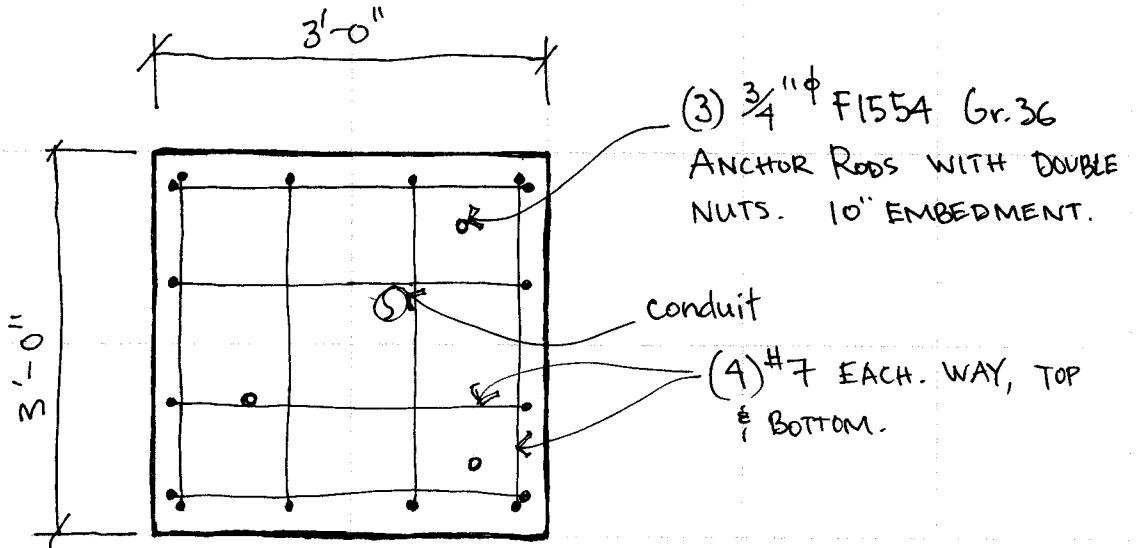 3'-0"
(3) 3/4"ϕ F1554 Gr.36
ANCHOR RODS WITH DOUBLE
NUTS. 10" EMBEDMENT.
3'-0"
S
conduit
(4) #7 EACH. WAY, TOP
& BOTTOM.